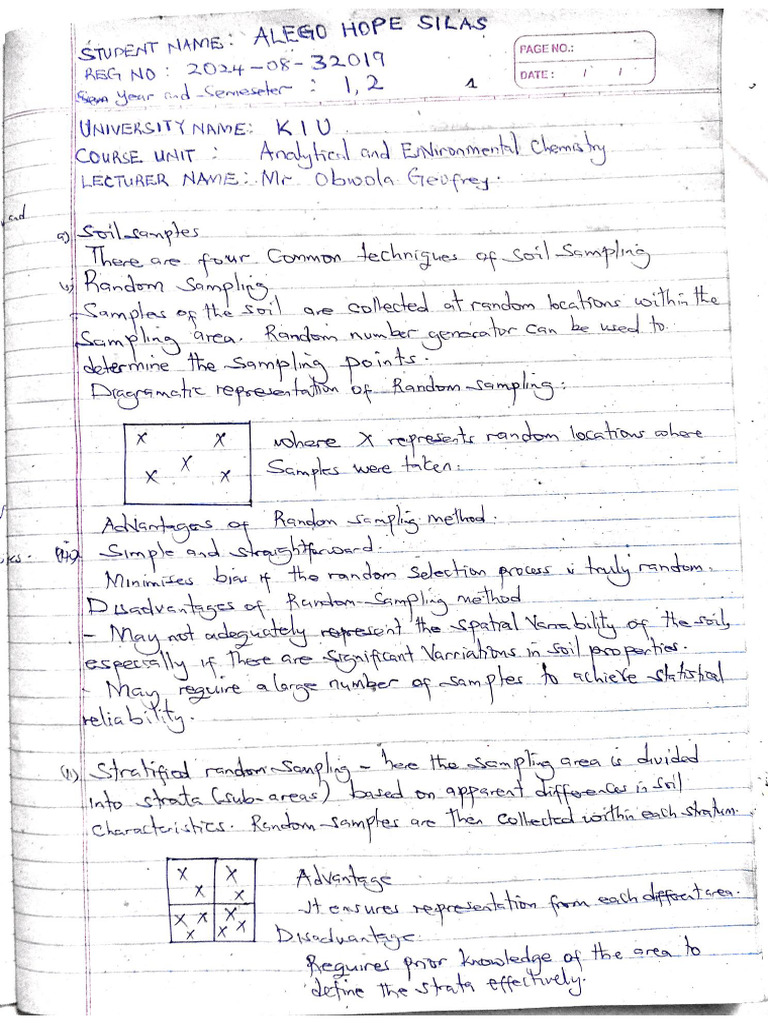 STUDENT NAME: ALEGO HOPE SILAS
PAGE NO.:
REG NO : 2024-08-32019
DATE: / /
Year and Semeseter : 1,2
1
UNIVERSITY NAME: KIU
COURSE UNIT : Analytical and ENvironmental Chemistry
LECTURER NAME: Mr Obwola Geofrey.
and
a) Soil samples
There are four Common techniques of Soil Sampling
i) Random Sampling
Samples of the soil are collected at random locations within the
Sampling area. Random number generator can be used to
determine the Sampling points.
Diagramatic representation of Random sampling:
X X
X
X X
where X represents random locations where
Samples were taken.
Advantages of Random sampling method.
Simple and straightforward.
Minimises bias if the random selection process is truly random.
Disadvantages of Random Sampling method
- May not adequately represent the spatial Variability of the soil,
especially if there are significant Varriations in soil properties.
- May require a large number of samples to achieve statistical
reliability.
(ii) Stratified random sampling - here the sampling area is divided
into strata (sub-areas) based on apparent differences in soil
characteristics. Random samples are then collected within each stratum.
X X
X X
X X X
X X X
Advantage
It ensures representation from each different area.
Disadvantage.
Requires prior knowledge of the area to
define the strata effectively.